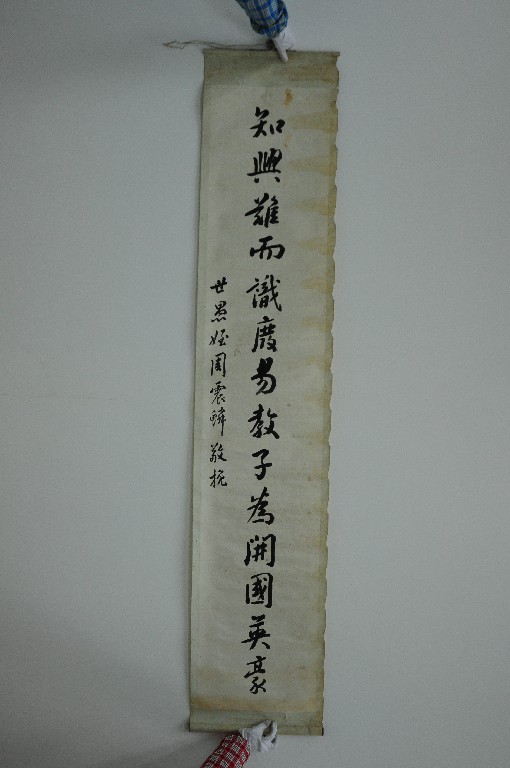 知興難而識度易教子為開國英豪
世愚姪周震鱗敬挽